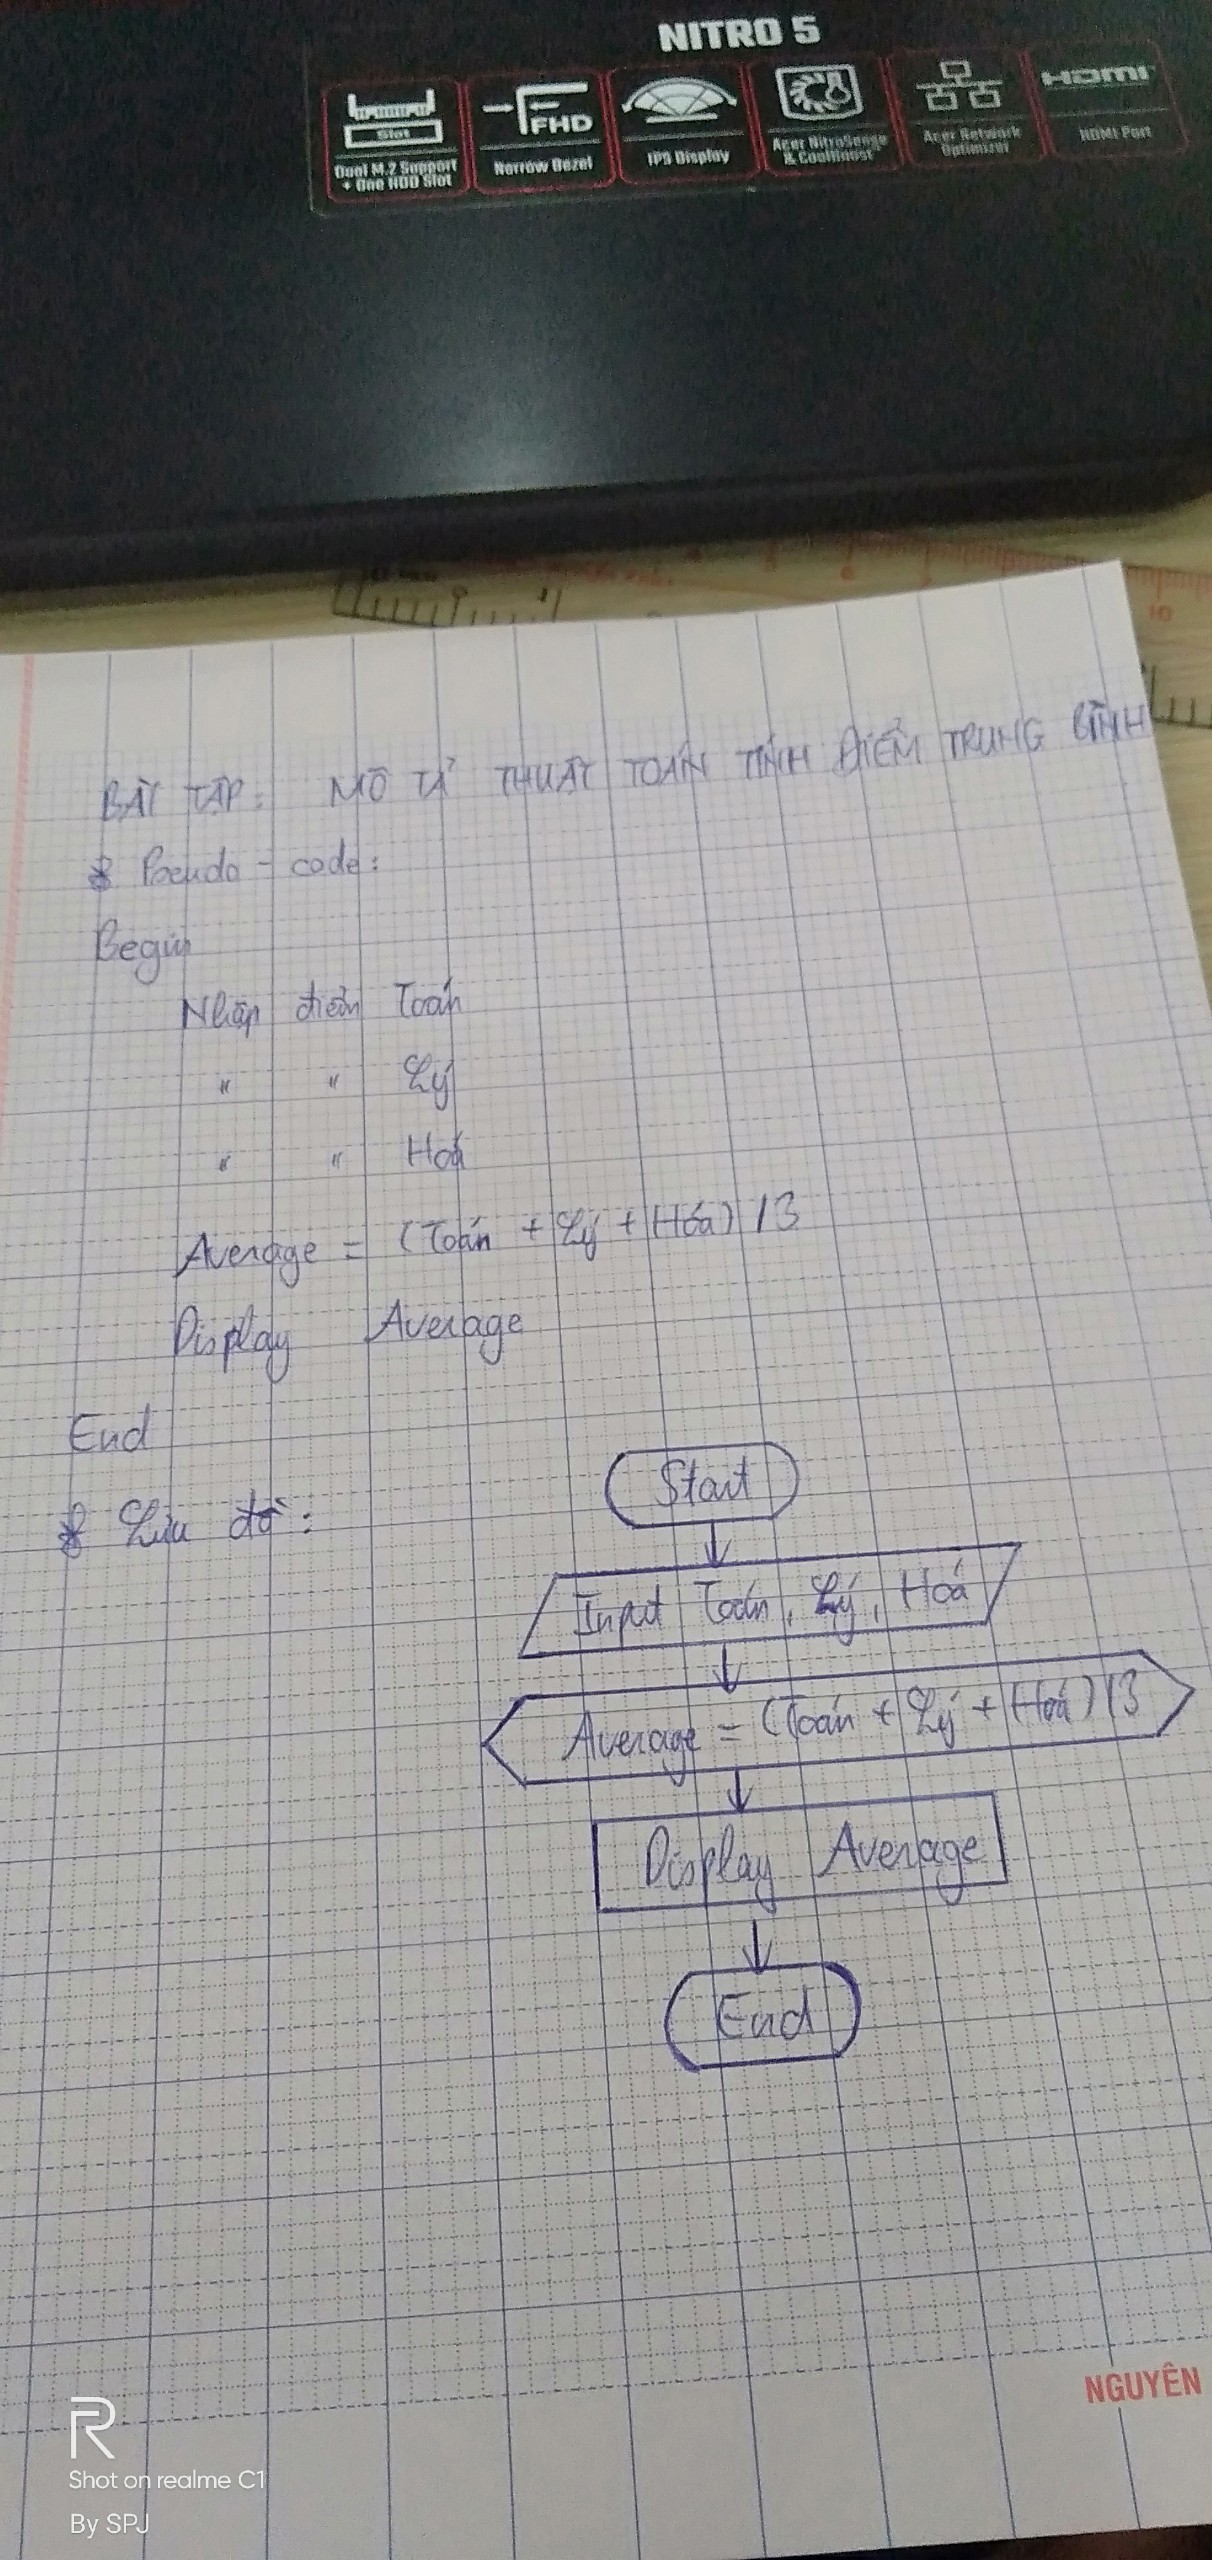 NITRO 5
Slot
Dual M.2 Support
+ One HDD Slot
FHD
Narrow Bezel
IPS Display
Acer NitroSense
& CoolBoost
Acer Network
Optimizer
HDMI
HDMI Port
BÀI TẬP: MÔ TẢ THUẬT TOÁN TÍNH ĐIỂM TRUNG BÌNH
* Pseudo - code:
Begin
Nhập điểm Toán
" " Lý
" " Hoá
Average = (Toán + Lý + Hóa) / 3
Display Average
End
* Lưu đồ:
Start
Input Toán, Lý, Hoá
Average = (Toán + Lý + Hoá) / 3
Display Average
End
NGUYÊN
R
Shot on realme C1
By SPJ